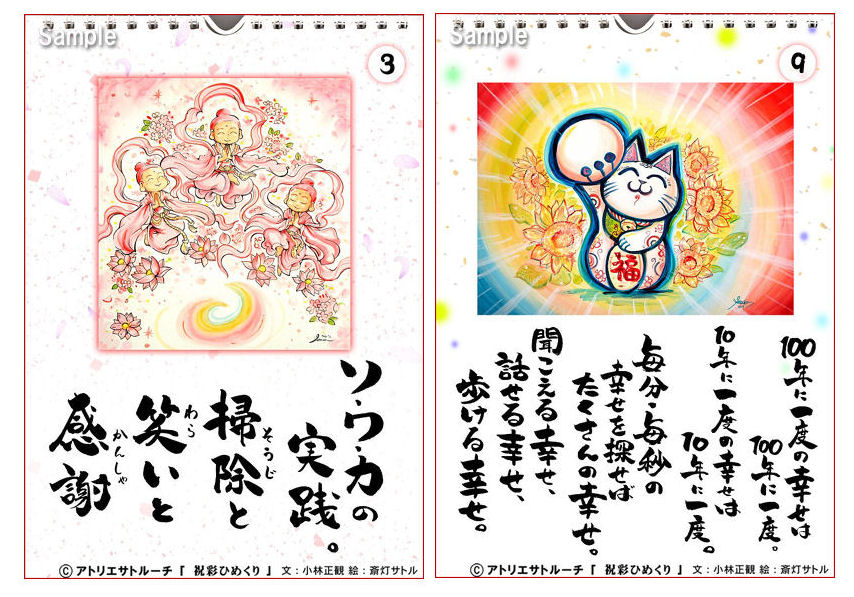 Sample
3
ソ・ウ・カの
実践。
掃除と
そうじ
笑いと
わら
感謝
かんしゃ
Ⓒアトリエサトルーチ『 祝彩ひめくり 』 文：小林正観 絵：斎灯サトル
Sample
9
福
100年に一度の幸せは
100年に一度。
10年に一度の幸せは
10年に一度。
毎分・毎秒の
幸せを探せば
たくさんの幸せ。
聞こえる幸せ、
話せる幸せ、
歩ける幸せ。
Ⓒアトリエサトルーチ『 祝彩ひめくり 』 文：小林正観 絵：斎灯サトル